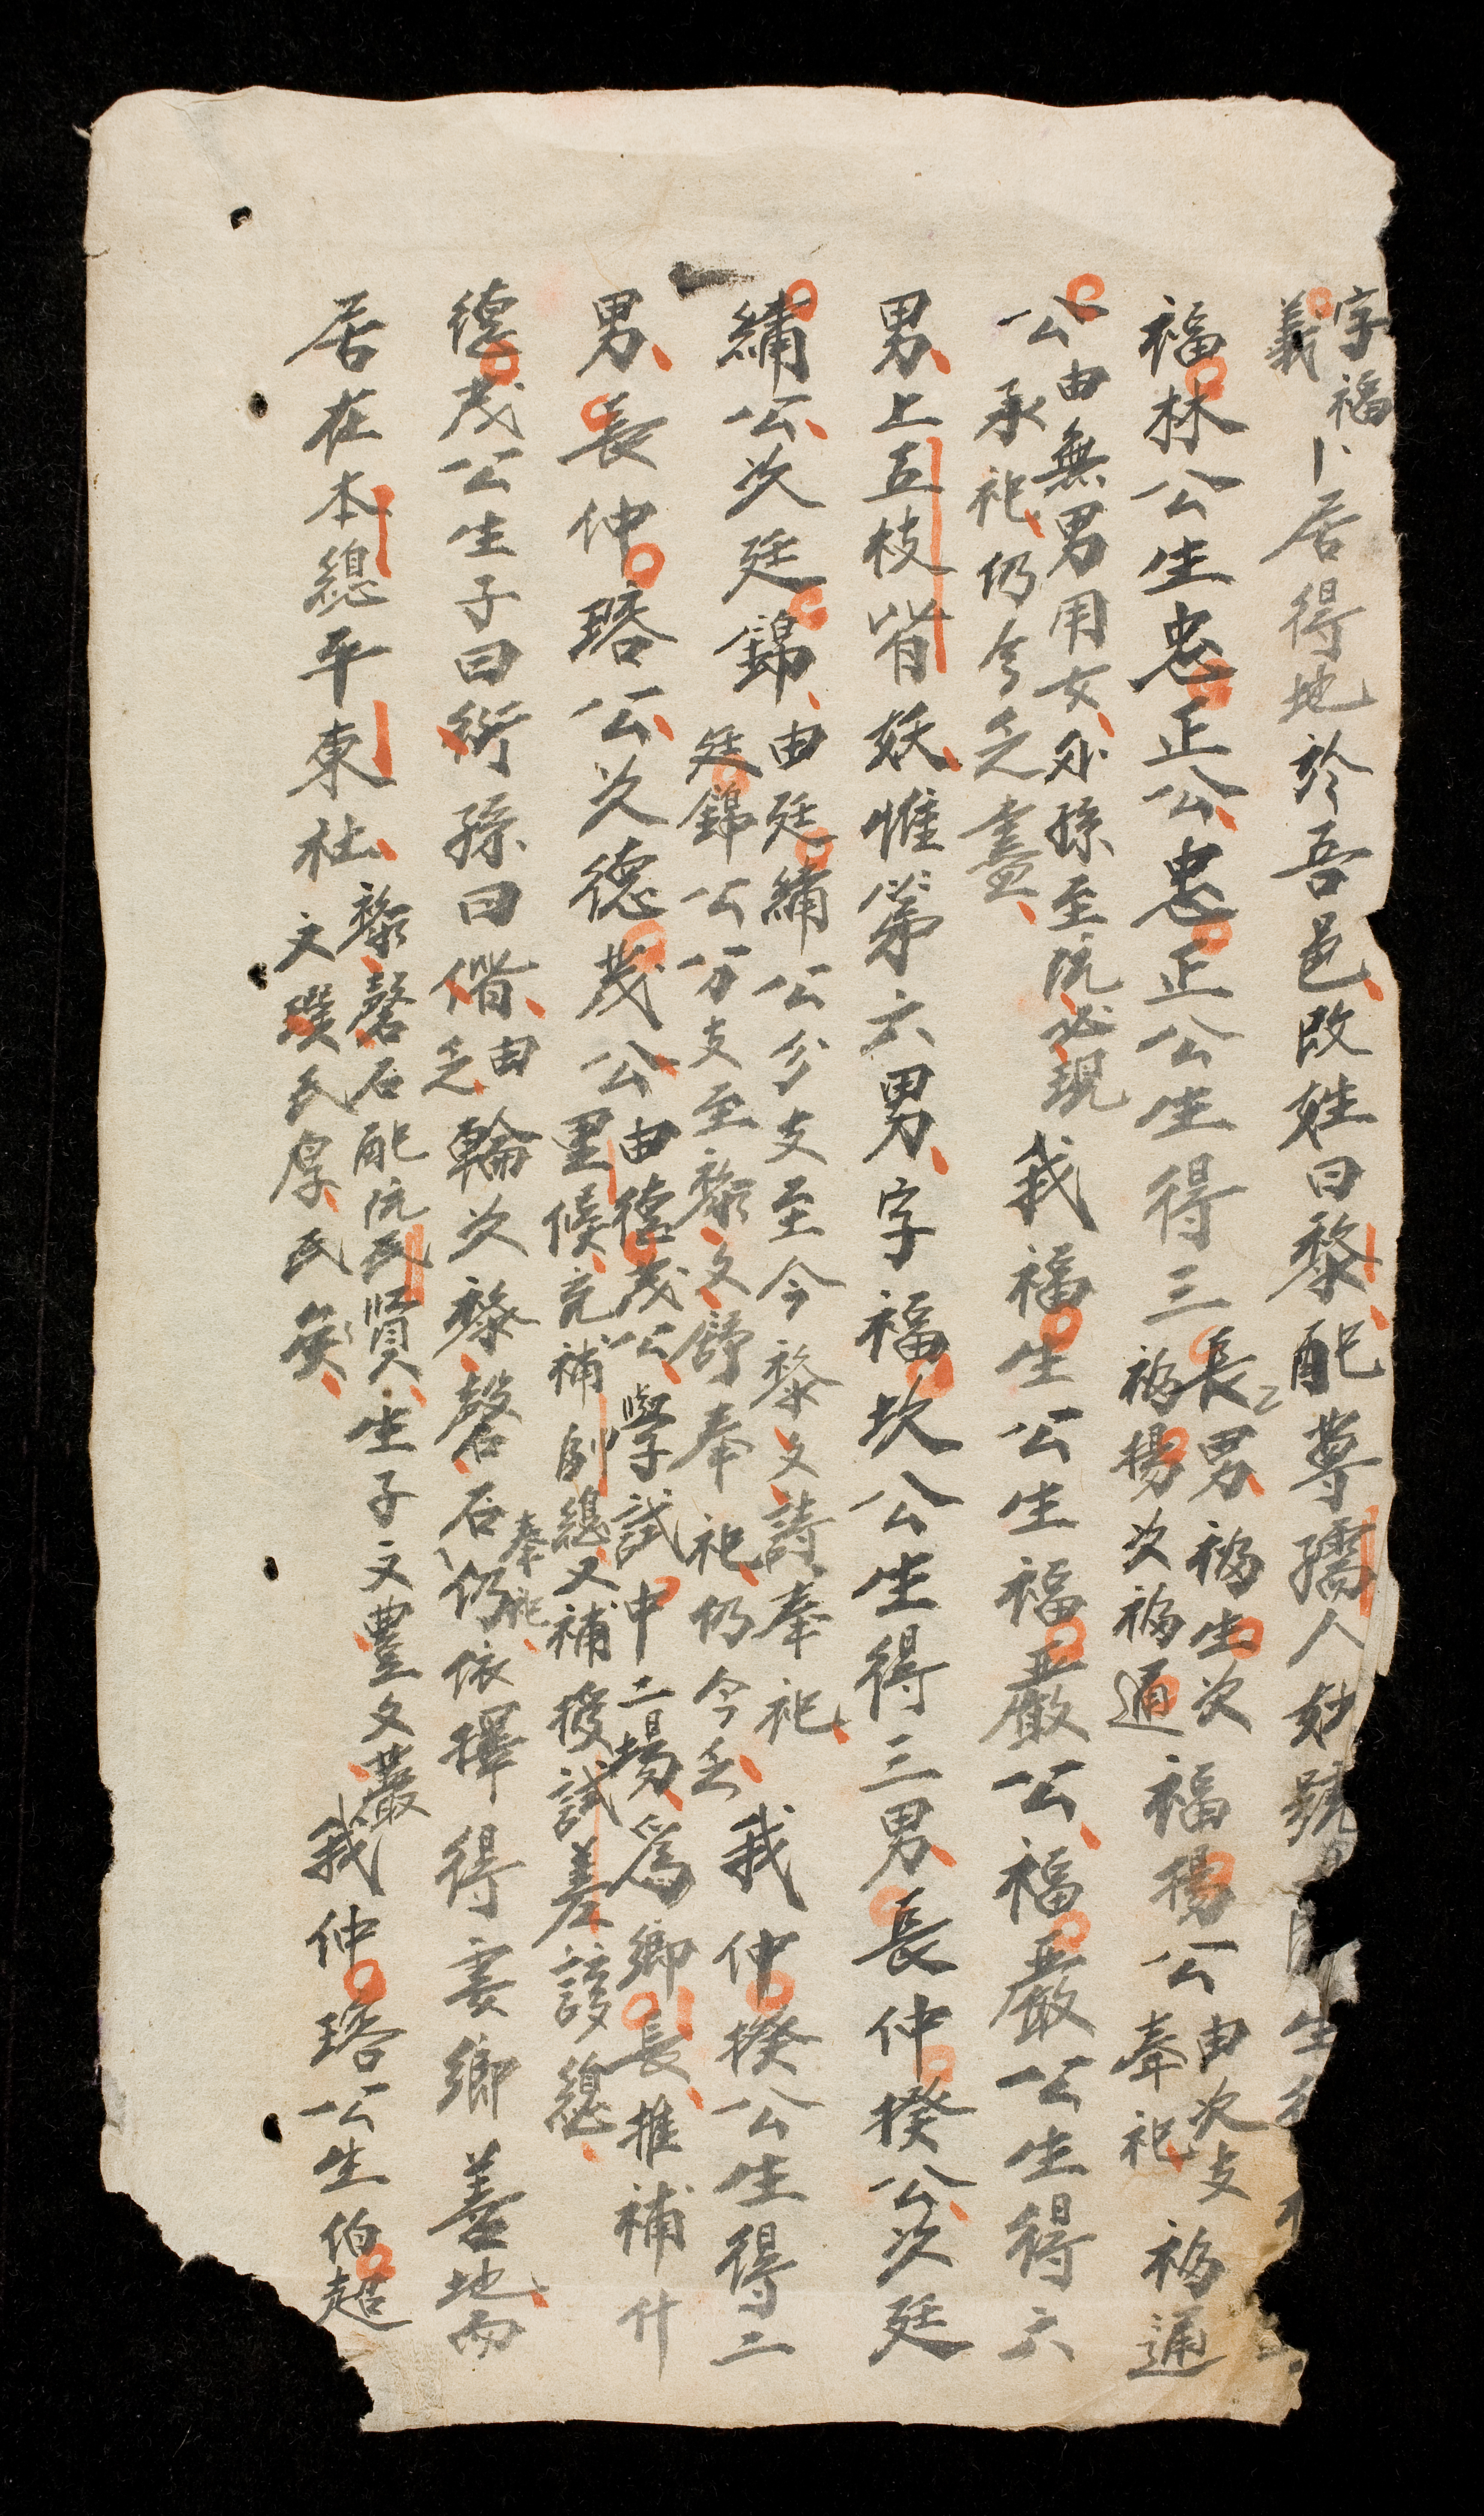 字福
義
卜居得地於吾邑改姓曰黎配尊孺人妙號
生
福林公生忠正公忠正公生得三
長男福生次
福揚次福通
福揚公
由次支
奉祀
福通
公
由無男用女外孫至阮必現
承祀仍今乏盡
我福生公生福嚴公福嚴公生得六
男上五枝皆妖惟第六男字福坎公生得三男長仲揆公次廷
繡公次廷錦
由廷繡公分支至今黎文詩奉祀
廷錦公分支至黎文舒奉祀仍今乏
我仲揆公生得二
男長仲瑢公次德茂公
由德茂公學試中二場爲鄉長推補什
里候充補副總又補授試差該總
德茂公生子曰衍孫曰偕
由
乏
輪次黎磬石
奉祀
仍依擇得妻鄉善地而
居在本總平東社
黎磬石配阮氏賢生子文豊文嚴
文璞氏厚氏
我仲瑢公生伯超